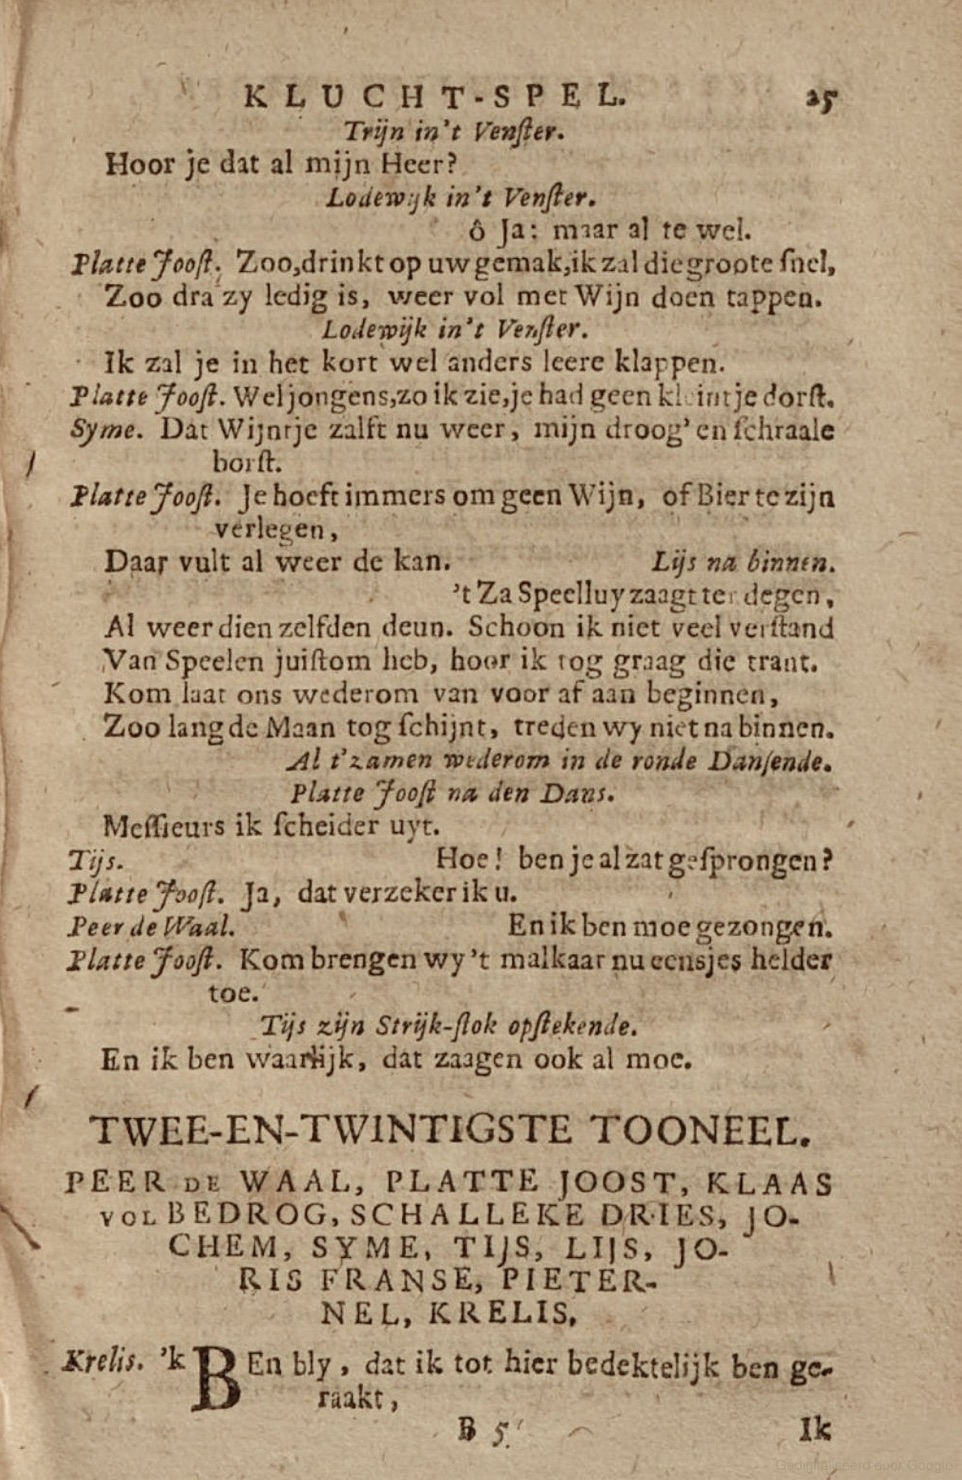 KLUCHT-SPEL. 25
Trijn in't Venſter.
Hoor je dat al mijn Heer?
Lodewijk in't Venſter.
ô Ja: maar al te wel.
Platte Jooſt. Zoo, drinkt op uw gemak, ik zal die groote ſnel,
Zoo dra zy ledig is, weer vol met Wijn doen tappen.
Lodewijk in't Venſter.
Ik zal je in het kort wel anders leere klappen.
Platte Jooſt. Wel jongens, zo ik zie, je had geen kleintje dorſt.
Syme. Dat Wijntje zalft nu weer, mijn droog' en ſchraale
borſt.
Platte Jooſt. Je hoeft immers om geen Wijn, of Bier te zijn
verlegen,
Daar vult al weer de kan. Lijs na binnen.
't Za Speelluy zaagt ter degen,
Al weer dien zelfden deun. Schoon ik niet veel verſtand
Van Speelen juiſt om heb, hoor ik tog graag die trant.
Kom laat ons wederom van voor af aan beginnen,
Zoo lang de Maan tog ſchijnt, treden wy niet na binnen.
Al t'zamen wederom in de ronde Danſende.
Platte Jooſt na den Dans.
Meſſieurs ik ſcheider uyt.
Tijs. Hoe! ben je al zat geſprongen?
Platte Jooſt. Ja, dat verzeker ik u.
Peer de Waal. En ik ben moe gezongen.
Platte Jooſt. Kom brengen wy 't malkaar nu eensjes helder
toe.
Tijs zijn Strijk-ſtok opſtekende.
En ik ben waarlijk, dat zaagen ook al moe.
TWEE-EN-TWINTIGSTE TOONEEL.
PEER DE WAAL, PLATTE JOOST, KLAAS
VOL BEDROG, SCHALLEKE DRIES, JO-
CHEM, SYME, TIJS, LIJS, JO-
RIS FRANSE, PIETER-
NEL, KRELIS,
Krelis. 'k BEn bly, dat ik tot hier bedektelijk ben ge-
raakt,
B 5 Ik